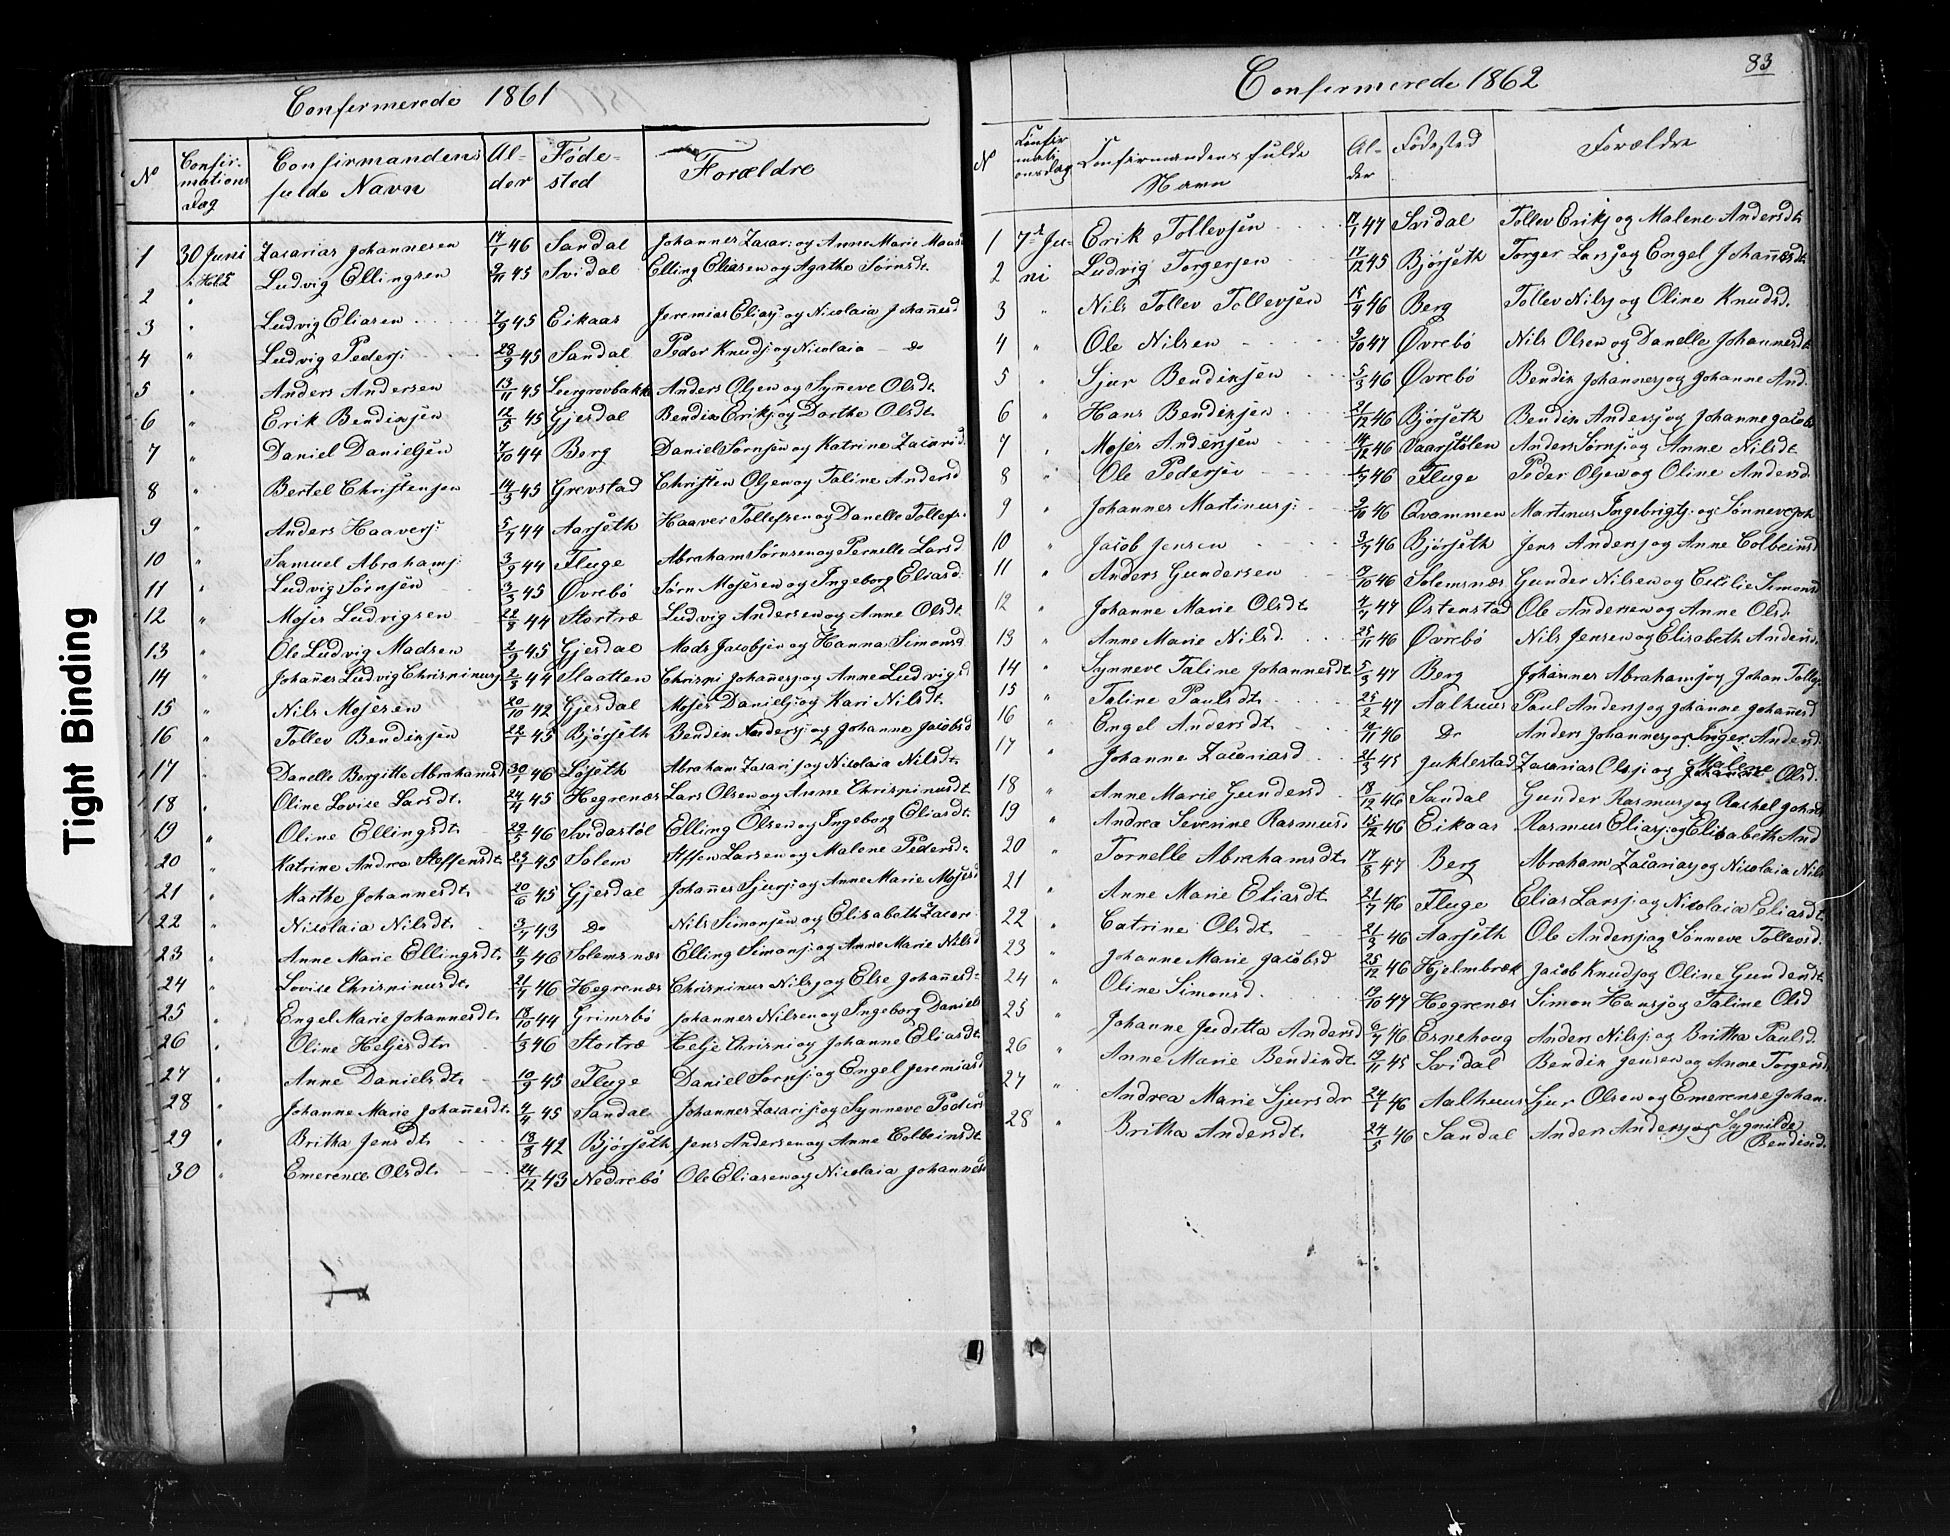 Confirmerede 1861
No Confirmations Dag Confirmandens fulde Navn Alder Fødested Forældre
1 30 Juni Zacarias Johannesen 17/1 46 Sandal Johannes Zacari: og Anne Marie
2 " Ludvig Ellingsen 9/11 45 Svidal Elling Eliasen og Agathe Sørnsdt.
3 " Ludvig Eliasen 7/9 45 Eikaas Jeremias Eliasj og Nicolaia Johañesd
4 " Ludvig Pedersj 28/9 45 Sandal Peder Knudsj og Nicolaia — Do
5 " Anders Andersen 13/11 45 Anders Olsen og Synneve Olsdt.
6 " Erik Bendixsen 12/5 45 Gjesdal Bendix Eriksj og Dorthe Olsdt.
7 " Daniel Danielsen 7/10 44 Berg Daniel Sørnsen og Katrine Zacarid.
8 " Bertel Christensen 14/3 45 Grevstad Christen Olsen og Taline Andersd
9 " Anders Haaversj: 5/7 44 Aarseth Haaver Tollefsen og Danelle Tollefs.
10 " Samuel Abrahamsj: 3/9 44 Fluge Abraham Sørnsen og Pernelle Larsd
11 " Ludvig Sørnsen 3/3 45 Øvrebó Sørn Mosesen og Ingeborg Eliasd.
12 " Moses Ludvigsen 22/3 44 Stortræ Ludvig Andersen og Anne Olsdt.
13 " Ole Ludvig Madsen 2/9 45 Gjesdal Mads Jacobsen og Hanna Simonsd
14 " Johañes Ludvig Chrispinusj 2/3 44 Slaatten Chrispi Johañesj og Anne Ludvigsd
15 " Nils Mosesen 20/10 42 Gjesdal Moses Danielsj og Kari Nilsdt.
16 " Tollev Bendixsen 22/1 45 Bjørseth Bendix Andersj og Johanne Jacobsd
17 " Danelle Bergitte Abrahamsd 30/1 46 Løseth Abraham Zacarisj og Nicolaia Nilsdt.
18 " Oline Lovise Larsdt. 24/11 45 Hegrenæs Lars Olsen og Anne Chrispinusdt.
19 " Oline Ellingsdt. 22/3 46 Svidastøl Elling Olsen og Ingeborg Eliasdt.
20 " Katrine Andrea Steffensdt. 23/1 45 Solem Steffen Larsen og Malene Pedersdt.
21 " Marthe Johannesdt. 20/6 45 Gjesdal Johañes Sjursj og Anne Marie Mosesd
22 " Nicolaia Nilsdt. 3/7 43 Do Nils Simonsen og Elisabeth Zacari
23 " Anne Marie Ellingsdt. 11/9 46 Solemsnæs Elling Simonsj og Anne Marie Nilsd
24 " Lovise Chrispinusdt. 21/7 46 Hegrenæs Chrispinus Nilsj og Else Johañesd
25 " Engel Marie Johannesdt. 18/10 44 Grimsbó Johannes Nilsen og Ingeborg Daniels
26 " Oline Heljesdtr. 1/3 46 Stortræ Helje Chrispi og Johanne Eliasdt.
27 " Anne Danielsdt. 10/9 45 Fluge Daniel Sørnsj og Engel Jeremiasd
28 " Johanne Marie Johañesdt. 4/4 45 Sandal Johannes Zacarisj og Synneve Peders
29 " Britha Jensdt. 18/3 42 Bjørseth Jens Andersen og Anne Colbeinsdt.
30 " Emerence Olsdt. 24/12 43 Nedrebó Ole Eliasen og Nicolaia Johannesd
83
Confirmerede 1862
N Confirmationsdag Confirmandens fulde Navn Alder Fødested Forældre
1 7de Ju- Erik Tollevsen 17/1 47 Svidal Tollev Eriksj og Malene Andersdt.
2 ni Ludvig Torgersen 17/12 45 Bjørseth Torger Larsj og Engel Johañesdt.
3 " Nils Tollev Tollevsen 15/4 46 Berg Tollev Nilsj og Oline Knudsd.
4 " Ole Nilsen 9/10 47 Øvrebó Nils Olsen og Danelle Johannesdt
5 " Sjur Bendixsen 5/3 46 Øvrebó Bendix Johannesj og Johanne And.
6 " Hans Bendixsen 21/12 46 Bjørseth Bendix Andersj og Johanne Jacob
7 " Moses Andersen 14/12 46 Vaarstølen Anders Sørnsj og Anne Nilsdt
8 " Ole Pedersen 46 Fluge Peder Olsen og Oline Andersd.
9 " Johannes Martinusj: 9/10 46 Qvammen Martinus Ingebrigtsj: og Sønneve Joh
10 " Jacob Jensen 3/7 46 Bjørseth Jens Andersj og Anne Colbeinsd
11 " Anders Gundersen 9/10 46 Solemsnæs Gunder Nilsen og Cicilie Simonsd
12 " Johanne Marie Olsdt. 4/7 47 Østenstad Ole Andersen og Anne Olsd.
13 " Anne Marie Nilsd. 25/11 46 Øvrebó Nils Jensen og Elisabeth Andersd.
14 " Synneve Taline Johannesdt 5/3 47 Berg Johannes Abrahamsj og Johan Tollev
15 " Taline Paulsdt. 25/2 47 Aalhuus Paul Andersj og Johanne Johañesd
16 " Engel Andersdt. 14/11 46 Do Anders Johannesj og Inger Andersd.
17 " Johanne Zacariasd 21/3 45 Juklestad Zacarias Olsj: og Malene Olsd.
18 " Anne Marie Gundersd 18/12 46 Sandal Gunder Rasmusj og Rachel Johañ
19 " Andrea Severine Rasmusd 15/12 46 Eikaas Rasmus Eliasj: og Elisabeth And
20 " Tornelle Abrahamsdt. 17/8 47 Berg Abraham Zacariasj og Nicolaia Nils
21 " Anne Marie Eliasdt. 21/7 46 Fluge Elias Larsj og Nicolaia Eliasdt.
22 " Catrine Olsdt. 21/3 46 Aarseth Ole Andersj og Sønneve Tollevsd.
23 " Johanne Marie Jacobsd 25/12 46 Hjelmbræk Jacob Knudsj og Oline Gundersdt
24 " Oline Simonsd. 19/10 47 Hegrenæs Simon Hansj og Taline Olsd
25 " Johanne Juditta Andersd 6/7 46 Ernehoug Anders Nilsj: og Britha Paulsd.
26 " Anne Marie Bendixdt. 19/11 45 Svidal Bendix Jensen og Anne Torgersd
27 " Andrea Marie Sjursdr 24/1 46 Aalhuus Sjur Olsen og Emerense Johan
28 " Britha Andersdt. 24/5 46 Sandal Anders Andersj og Sygnilde Bendixd.
Tight Binding